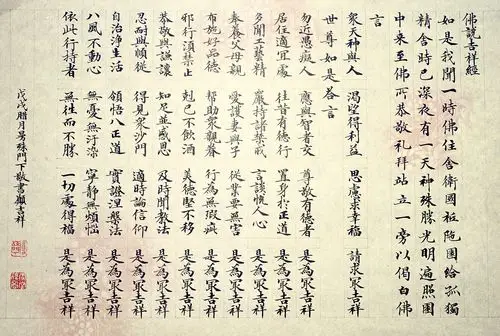 佛說吉祥經
如是我聞一時佛住舍衛國祇陁園給孤獨
精舍時已深夜有一天神殊勝光明遍照園
中来至佛所恭敬礼拜站立一旁以偈白佛
言
衆天神與人 渴望得利益 思慮求幸福 請求冣吉祥
世尊如是答言
勿近愚癡人 應與智者交 尊敬有德者 是為冣吉祥
居住適宜處 往昔有德行 置身於正道 是為冣吉祥
多聞工藝精 嚴持諸禁戒 言談悅人心 是為冣吉祥
奉養父母親 愛護妻與子 從業要無害 是為冣吉祥
布施好品德 幫助衆親眷 行為無瑕疵 是為冣吉祥
邪行須禁止 剋己不飲酒 美德堅不移 是為冣吉祥
恭敬與謙讓 知足並感恩 及時聞教法 是為冣吉祥
忍耐與順從 得見衆沙門 適時論信仰 是為冣吉祥
自治淨生活 領悟八正道 實證涅槃法 是為冣吉祥
八風不動心 無憂無汙染 寧靜無煩惱 是為冣吉祥
依此行持者 無往而不勝 一切處得福 是為冣吉祥
戊戌腊月善殊門下敬書願吉祥